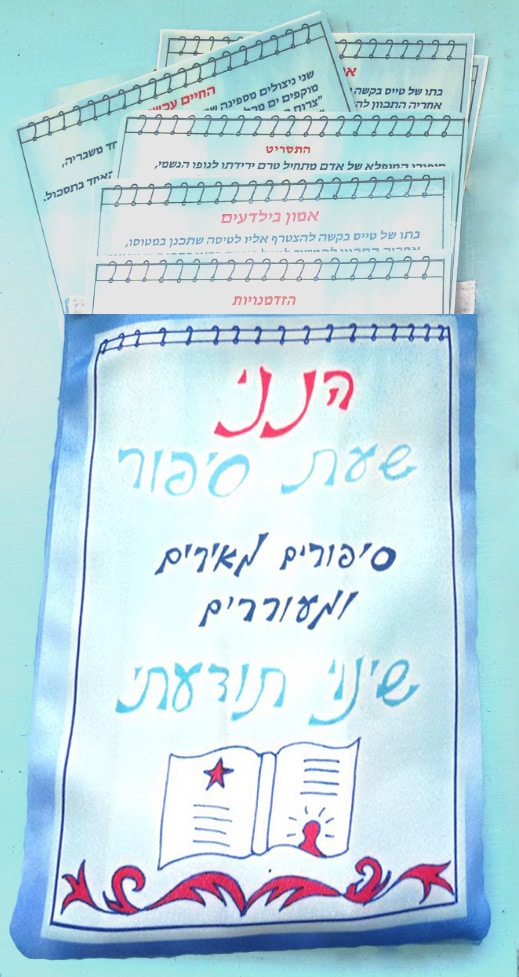 בתו של טייס בקשה
אחריה התכוון לה
החיים עכש
שני ניצולים מספינה
מוקפים ים
חד משבריה,
האחד בתסכול.
התסריט
של אדם מתחיל טרם ירידתו לגופו הגשמי,
אמון בילדעים
בתו של טייס בקשה להצטרף אליו לטיסה שתכנן במטוסו,
הזדמנויות
הנני
שעת סיפור
סיפורים מאירים
ומעוררים
שינוי תודעתי